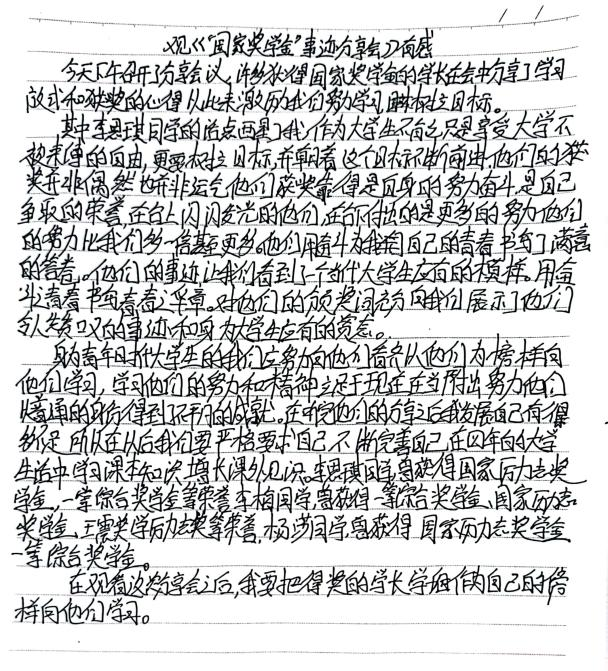 观《“国家奖学金”事迹分享会》有感
今天下午召开了分享会议，许多获得国家奖学金的学长在会中分享了学习
方式和获奖的心得 从此来激励我们努力学习 树立目标。
其中李思琪同学的 观点 了我 作为大学生不 只是享受大学不
被束缚的自由，更要树立目标，并朝着这个目标不断前进，他们的获
奖并非偶然 也并非运气 他们获奖靠得是自身的努力奋斗 是自己
争取的荣誉 在台上闪闪发光的他们，在台下付出的是更多的努力 他们
的努力比我们多一倍甚至更多。他们用奋斗为我 自己的青春书写了满意
的答卷。他们的事迹让我们看到了一个当代大学生应有的模样。用奋
斗 青春书写青春 华章。对他们的颁奖词充分向我们展示了他们
令人 的事迹和身为大学生应有的 。
身为青年时代大学生的我们应努力向他们看齐 以他们为榜样向
他们学习，学习他们的努力和精神 立足于现在 在当 付出努力 他们
以普通的身份得到不平凡的成就。在听完他们的分享之后我发展自己有很
多不足 所以在以后我们要严格要求自己 不断完善自己 在四年的大学
生活中学习课本知识 增长课外见识。李思琪同学曾获得国家励志奖
学金，一等综合奖学金等荣誉 李楠同学曾获得一等综合奖学金、国家励志
奖学金、 等荣誉，杨 同学曾获得 国家励志奖学金
一等综合奖学金。
在观看这次分享会之后，我要把得奖的学长学姐作为自己的榜
样向他们学习。